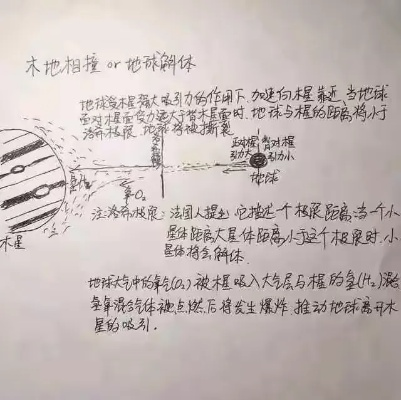 木地相撞 or 地球解体
地球受木星强大吸引力的作用下,加速向木星靠近,当地球
面对木星面受力远大于背木星面时,地球与木星的距离将小于
洛希极限,地球将被撕裂
正对木星
引力大
背对木星
引力小
地球
氢气
氧O₂
木星
注:洛希极限:法国人提出,它描述一个极限距离,当一个小
星体距离大星体距离小于这个极限时,小
星体将会解体.
地球大气中的氧气(O₂)被木星吸入大气层与木星的氢(H₂)混合
氢氧混合气体被点燃后将发生爆炸,推动地球离开木
星的吸引.